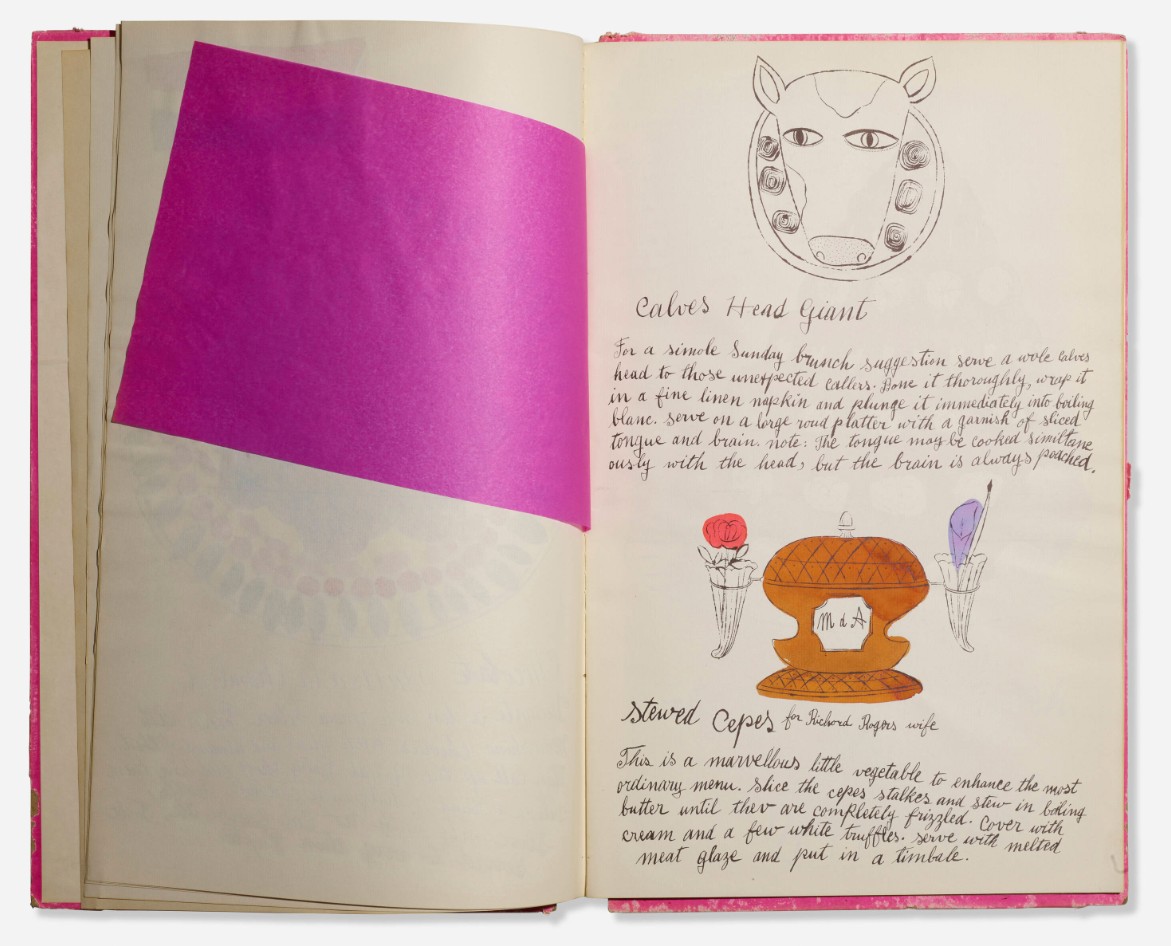 Calves Head Giant
For a simole Sunday brunch suggestion serve a wole Calves
head to those unexpected callers. Bone it thoroughly, wrap it
in a fine linen napkin and plunge it immediately into boiling
blanc. serve on a large roud platter with a garnish of sliced
tongue and brain. note: The tongue may be cooked similtane
ously with the head, but the brain is always poached.
M d A
Stewed Cepes for Richard Rogers wife
This is a marvellous little vegetable to enhance the most
ordinary menu. Slice the cepes stalkes and stew in boling
butter until thev are completely frizzled. Cover with
cream and a few white truffles. Serve with melted
meat glaze and put in a timbale.